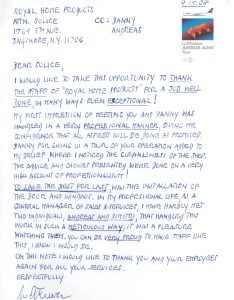 ROYAL HOME PRODUCTS
ATTN. SOLICE    CC: DANNY
1764 5TH AVE.    ANDREAS
BAYSHORE, N.Y. 11706
9.15.08
Lufthansa
AIRBUS A380
Tour
DEAR SOLICE,
I WOULD LIKE TO TAKE THIS OPPORTUNITY TO THANK
THE STAFF OF "ROYAL HOME PRODUCTS" FOR A JOB WELL
DONE, IN MANY WAYS EVEN EXCEPTIONAL!
MY FIRST IMPRESSION OF MEETING YOU AND DANNY WAS
HANDLED IN A VERY PROFESSIONAL MANNER, GIVING ME
CONFIDENCE THAT ALL ASPECTS WILL BE DONE AS PROMISED.
DANNY FOR GIVING US A TOUR OF YOUR OPERATION ADDED TO
MY BELIEF WHERE I NOTICED THE CLEANLINESS OF THE SHOP.
THE ADVICE AND CHOICES PRESENTED WERE DONE ON A VERY
HIGH ACCOUNT OF PROFESSIONALITY!
TO SAVE THE BEST FOR LAST WAS THE INSTALLATION OF
THE DOOR AND WINDOWS. IN MY PROFESSIONAL LIFE AS A
GENERAL MANAGER OF SALES & SERVICES, I HAVE HARDLY MET
TWO INDIVIDUALS, ANDREAS AND DIMITRI, THAT HANDLED THIS
WORK IN SUCH A METICULOUS WAY, IT WAS A PLEASURE
WATCHING THEM. YOU CAN BE VERY PROUD TO HAVE STAFF LIKE
THIS, I KNOW I WOULD BE.
ON THIS NOTE I WOULD LIKE TO THANK YOU AND YOUR EMPLOYEES
AGAIN FOR ALL YOUR SERVICES.
RESPECTFULLY